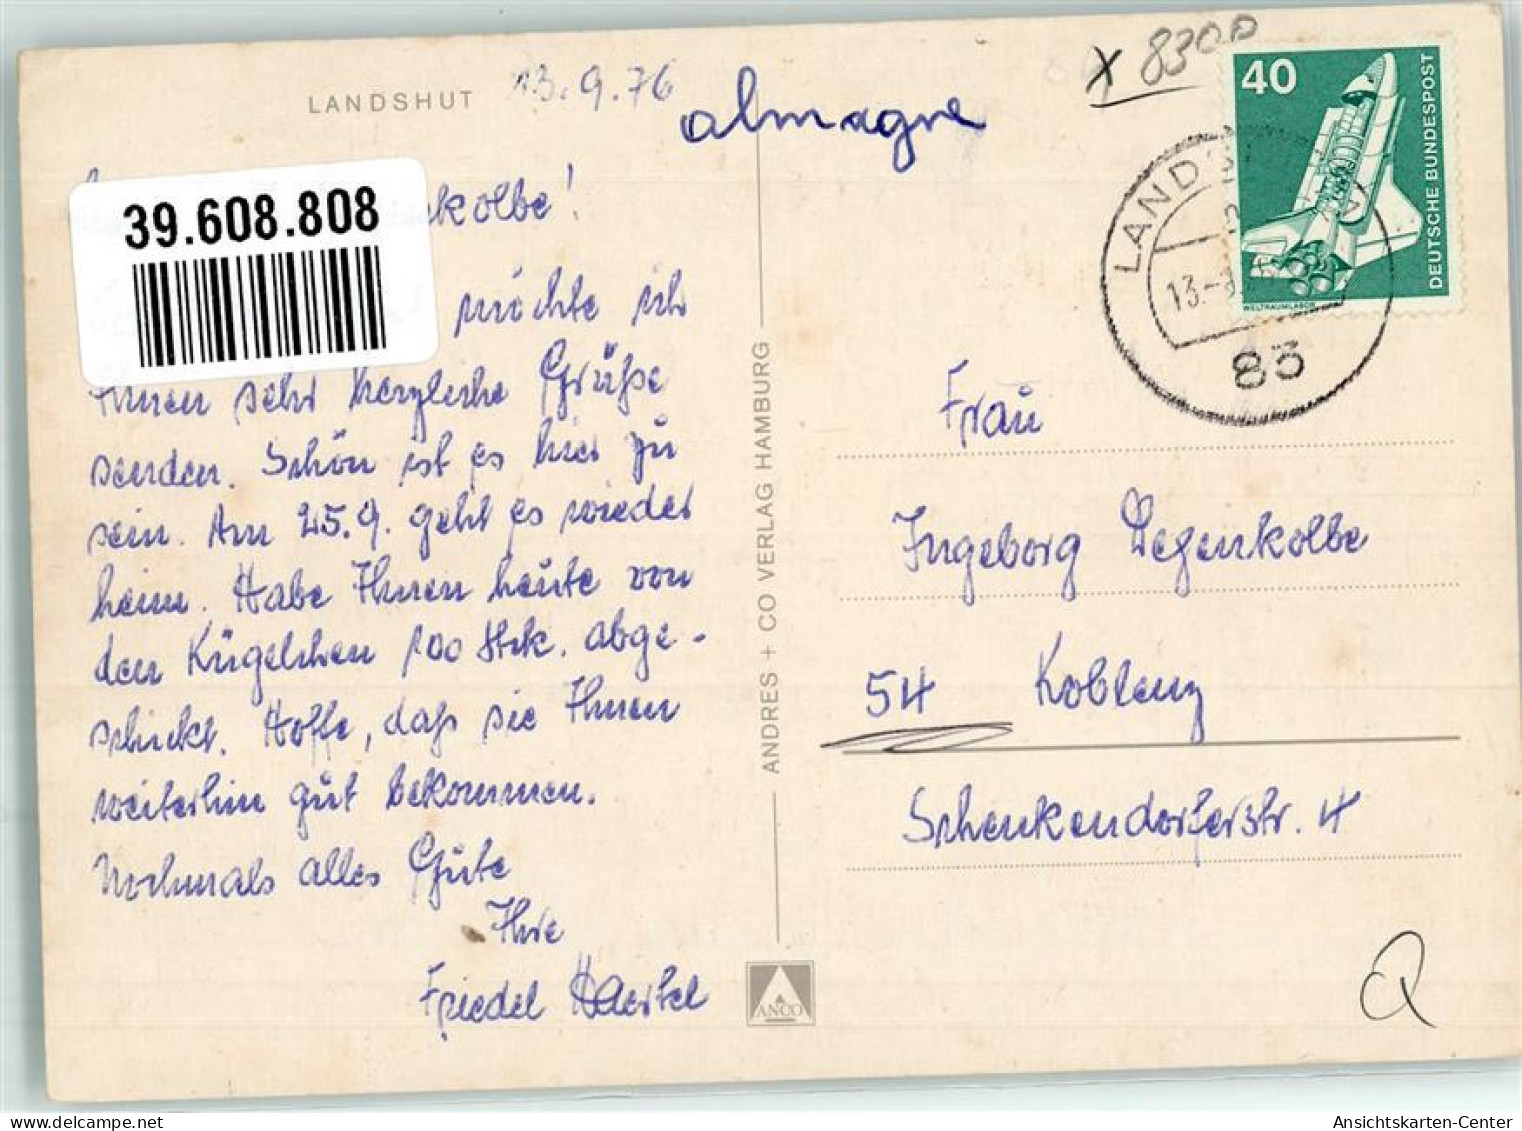 LANDSHUT
13.9.76
almagne
X 8300
40
DEUTSCHE BUNDESPOST
WELTRAUMLABOR
LANDSHUT
13.-9.
83
39.608.808
kolbe!
möchte ich
Ihnen sehr herzliche Grüße
senden. Schön ist es hier zu
sein. Am 25.9. geht es wieder
heim. Habe Ihnen heute von
den Kügelchen 100 Stck. abge-
schickt. Hoffe, daß sie Ihnen
weiterhin gut bekommen.
Nochmals alles Gute
Ihre
Friedel Haertel
ANDRES + CO VERLAG HAMBURG
ANCO
Frau
Ingeborg Degenkolbe
54 Koblenz
Schenkendorferstr. 4
Ansichtskarten-Center